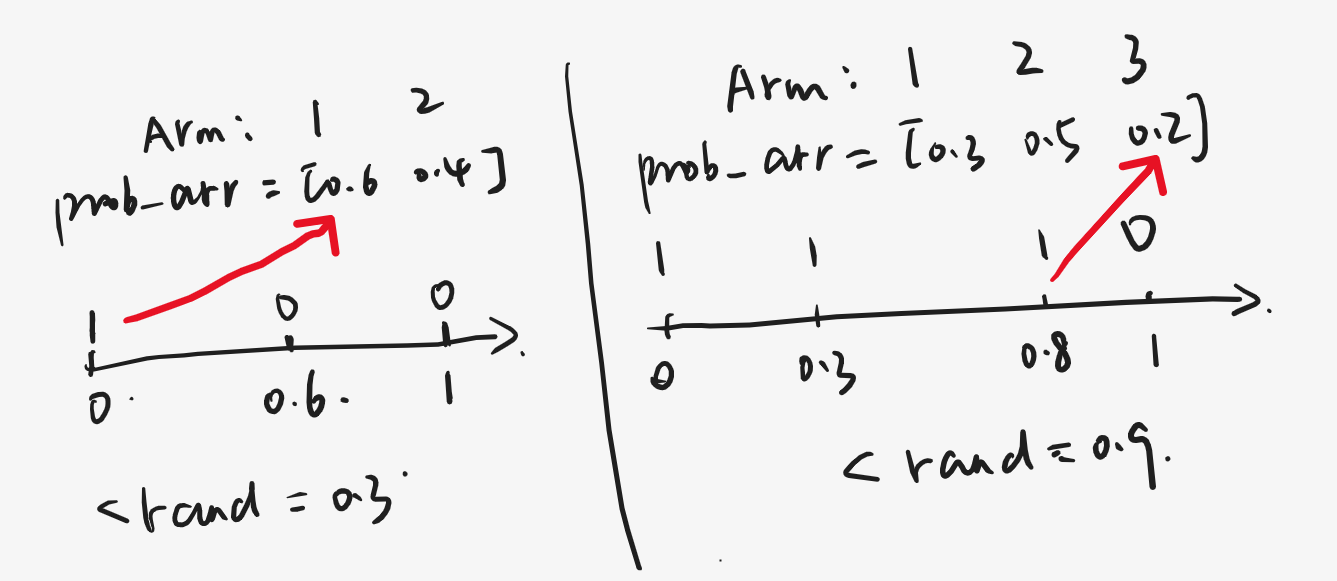 Arm: 1 2
prob_arr = [0.6 0.4]
1 0 0
0 0.6 1
< rand = 0.3
Arm: 1 2 3
prob_arr = [0.3 0.5 0.2]
1 1 1 0
0 0.3 0.8 1
< rand = 0.9